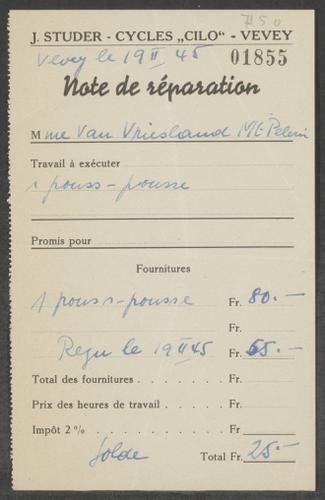 J. STUDER - CYCLES „CILO“ - VEVEY
Vevey le 19 II 45 01855
Note de réparation
Mme Van Vriesland Mt Pelerin
Travail à exécuter
1 pouss-pousse
Promis pour
Fournitures
1 pouss-pousse Fr. 80.-
Fr.
Reçu le 19 II 45 Fr. 55.-
Total des fournitures . . . . . . Fr.
Prix des heures de travail . . . . Fr.
Impôt 2 % . . . . . . . . . Fr
Solde Total Fr. 25.-